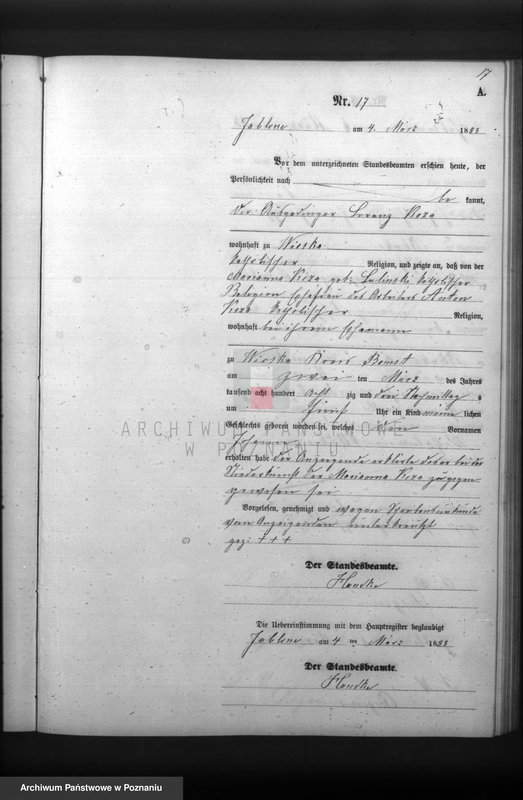 17
A.
Nr. 17
Jablone am 4. März 1883
Vor dem unterzeichneten Standesbeamten erschien heute, der
Persönlichkeit nach
be kannt,
der Ausgedinger Lorenz Koza
wohnhaft zu Wioska
katholischer Religion, und zeigte an, daß von der
Marianna Koza geb. katholischer
Religion Ehefrau des Arbeiters Anton
Koza katholischer Religion,
wohnhaft bei ihrem Ehemann
zu Wioska Kreis Bomst
am zwei ten März des Jahres
tausend acht hundert acht zig und drei Nachmittag s
um fünf Uhr ein Kind männ lichen
Geschlechts geboren worden sei, welches den Vornamen
ARCHIWUM PAŃSTWOWE
W POZNANIU
erhalten habe der Anzeigende erklärte daß er bei der
Niederkunft der Marianna Koza zugegen
gewesen sei
Vorgelesen, genehmigt und wegen Schreibensunkunde
vom Anzeigenden unterkreuzt
gez: + + +
Der Standesbeamte.
Handke
Die Uebereinstimmung mit dem Hauptregister beglaubigt
Jablone am 4 ten März 1883
Der Standesbeamte.
Handke
Archiwum Państwowe w Poznaniu